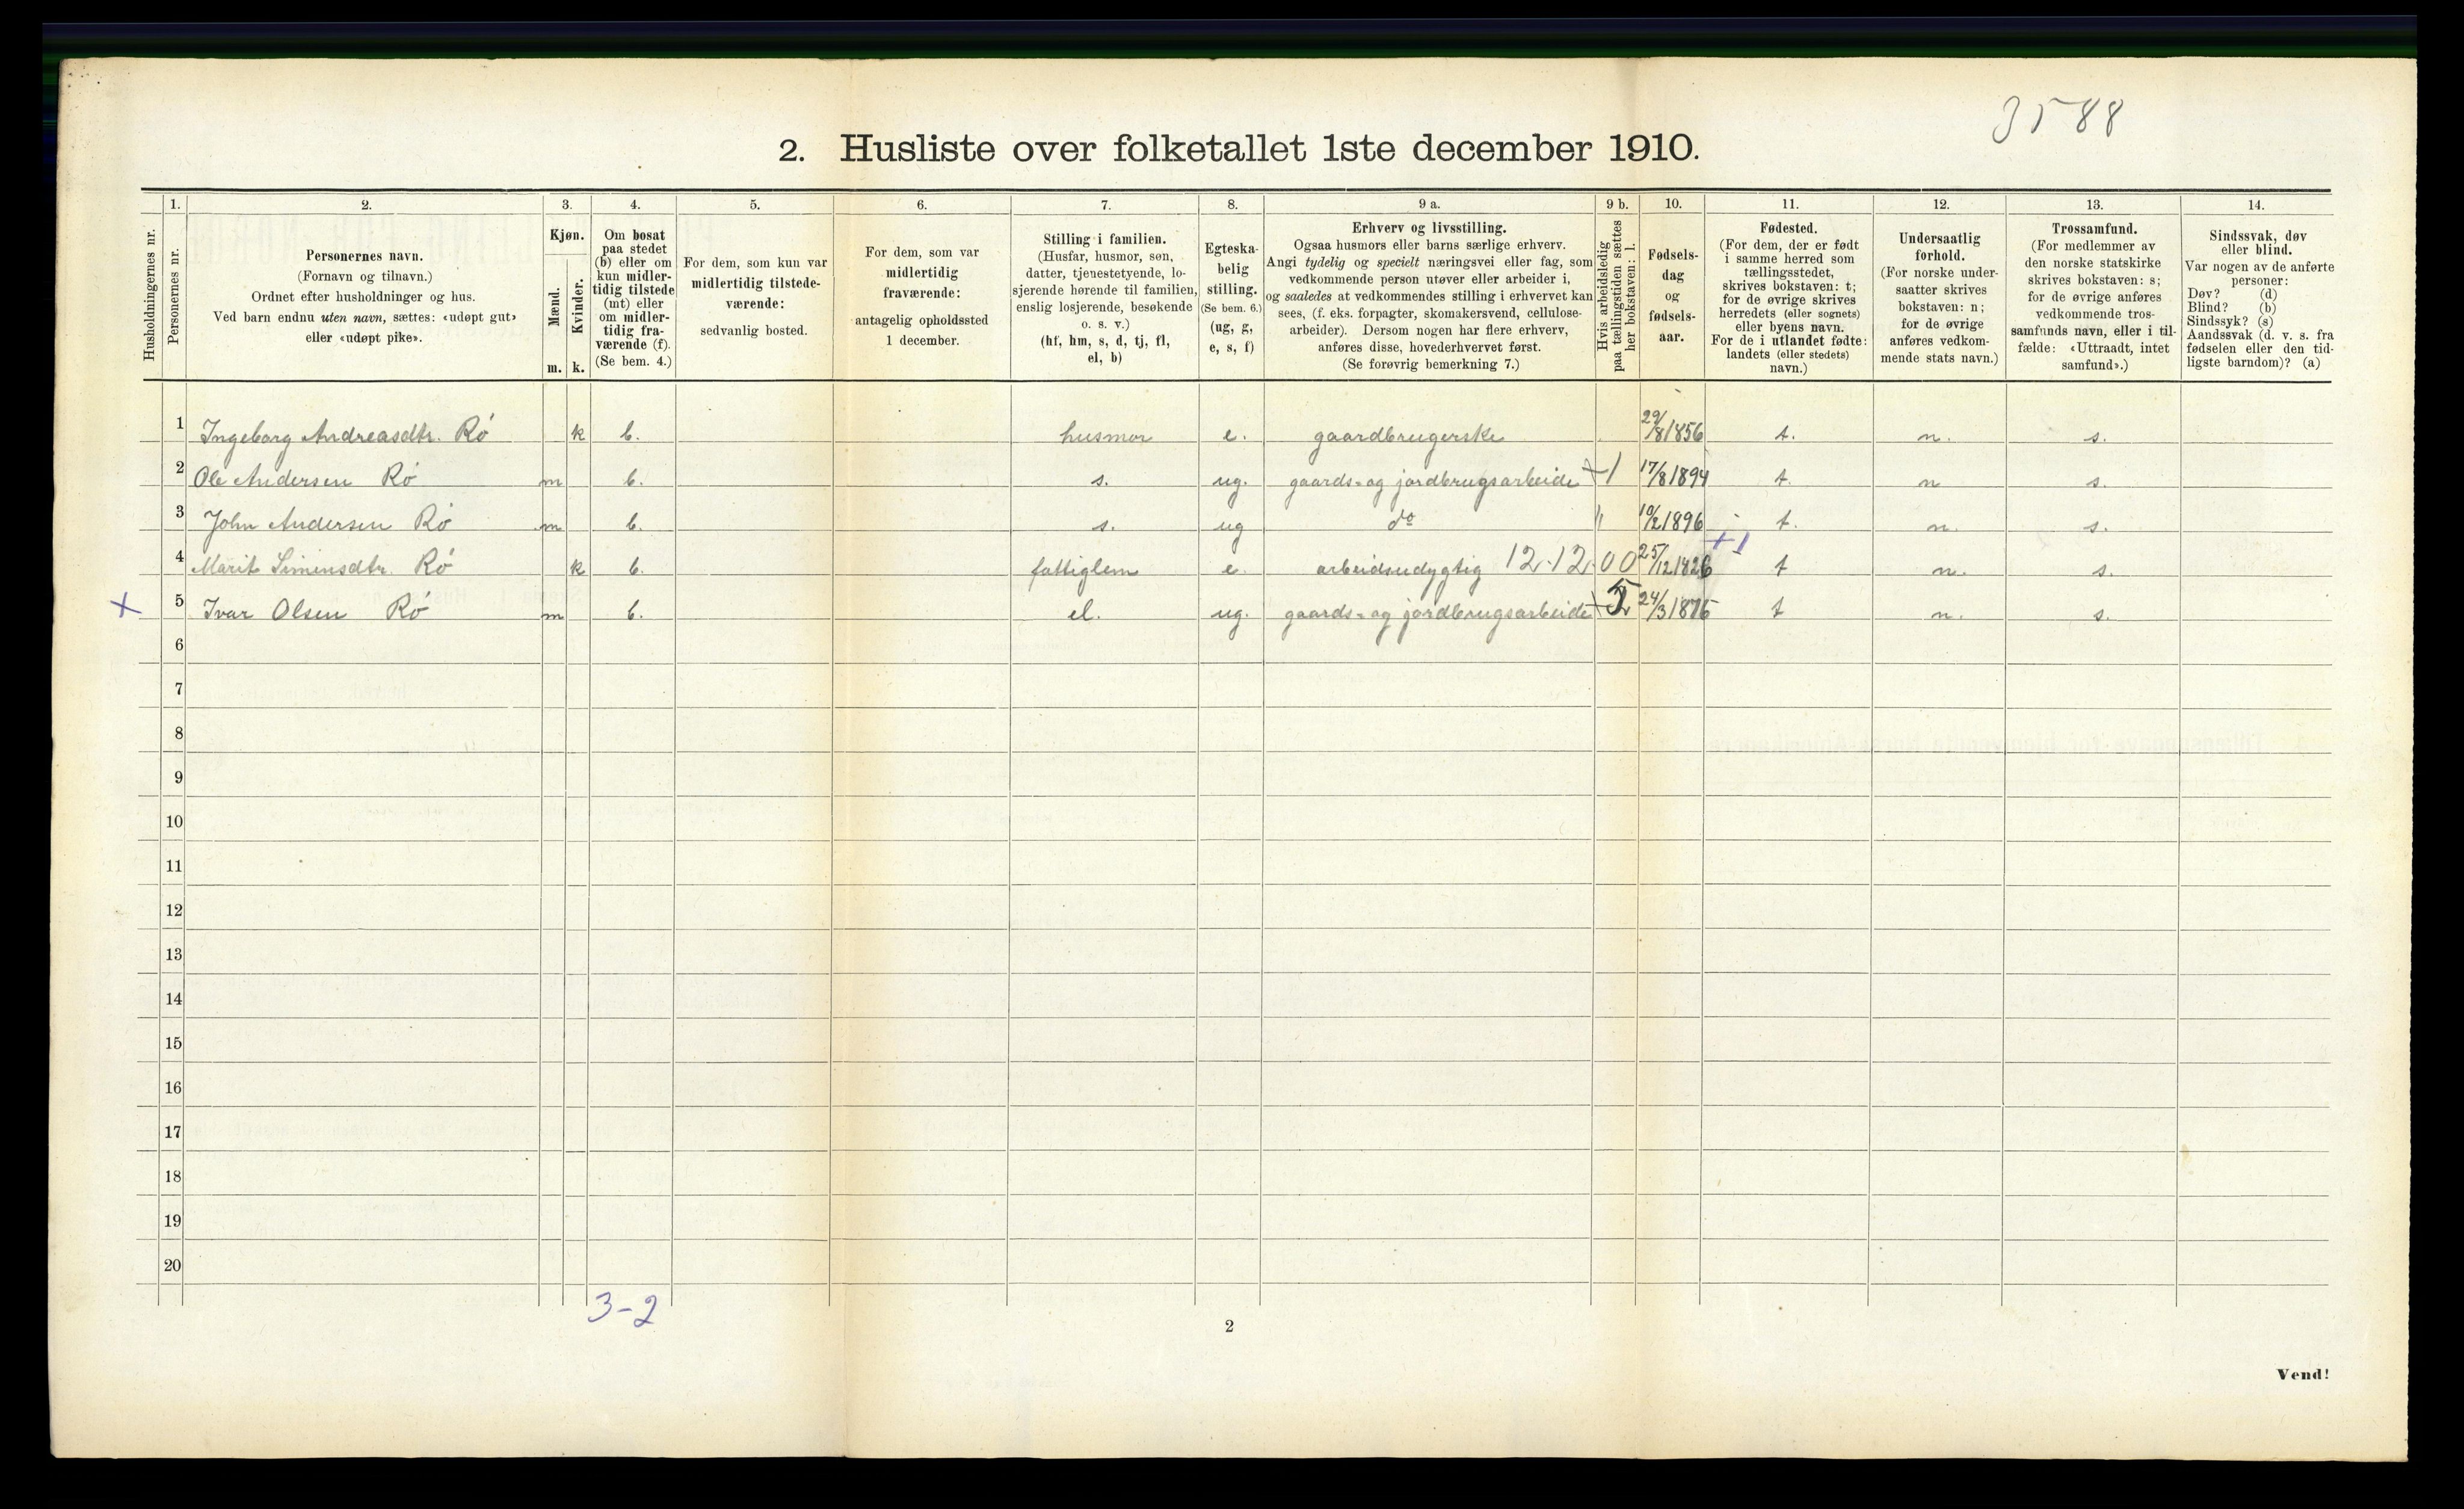 3588
2. Husliste over folketallet 1ste december 1910.
1. 2. 3. 4. 5. 6. 7. 8. 9 a. 9 b. 10. 11. 12. 13. 14.
Husholdningernes nr.
Personernes nr.
Personernes navn.
(Fornavn og tilnavn.)
Ordnet efter husholdninger og hus.
Ved barn endnu uten navn, sættes: «udøpt gut»
eller «udøpt pike».
Kjøn.
Mænd.
Kvinder.
m. k.
Om bosat
paa stedet
(b) eller om
kun midler-
tidig tilstede
(mt) eller
om midler-
tidig fra-
værende (f).
(Se bem. 4.)
For dem, som kun var
midlertidig tilstede-
værende:
sedvanlig bosted.
For dem, som var
midlertidig
fraværende:
antagelig opholdssted
1 december.
Stilling i familien.
(Husfar, husmor, søn,
datter, tjenestetyende, lo-
sjerende hørende til familien,
enslig losjerende, besøkende
o. s. v.)
(hf, hm, s, d, tj, fl,
el, b)
Egteska-
belig
stilling.
(Se bem. 6.)
(ug, g,
e, s, f)
Erhverv og livsstilling.
Ogsaa husmors eller barns særlige erhverv.
Angi tydelig og specielt næringsvei eller fag, som
vedkommende person utøver eller arbeider i,
og saaledes at vedkommendes stilling i erhvervet kan
sees, (f. eks. forpagter, skomakersvend, cellulose-
arbeider). Dersom nogen har flere erhverv,
anføres disse, hovederhvervet først.
(Se forøvrig bemerkning 7.)
Hvis arbeidsledig
paa tællingstiden sættes
her bokstaven: l.
Fødsels-
dag
og
fødsels-
aar.
Fødested.
(For dem, der er født
i samme herred som
tællingsstedet,
skrives bokstaven: t;
for de øvrige skrives
herredets (eller sognets)
eller byens navn.
For de i utlandet fødte:
landets (eller stedets)
navn.)
Undersaatlig
forhold.
(For norske under-
saatter skrives
bokstaven: n;
for de øvrige
anføres vedkom-
mende stats navn.)
Trossamfund.
(For medlemmer av
den norske statskirke
skrives bokstaven: s;
for de øvrige anføres
vedkommende tros-
samfunds navn, eller i til-
fælde: «Uttraadt, intet
samfund».)
Sindssvak, døv
eller blind.
Var nogen av de anførte
personer:
Døv? (d)
Blind? (b)
Sindssyk? (s)
Aandssvak (d. v. s. fra
fødselen eller den tid-
ligste barndom)? (a)
1 Ingeborg Andreasdtr. Rø k b. husmor e. gaardbrugerske 29/8 1856 t. n. s.
2 Ole Andersen Rø m b. s. ug. gaards- og jordbrugsarbeide +1 17/8 1894 t. n s.
3 John Andersen Rø m b. s. ug do " 10/2 1896 t. n. s.
+1
4 Marit Simensdtr. Rø k b. fattiglem e. arbeidsudygtig 12.12.00 25/12 1826 t n. s.
x 5 Ivar Olsen Rø m b. el. ug. gaards- og jordbrugsarbeide 24/3 1876 t n. s.
6
7
8
9
10
11
12
13
14
15
16
17
18
19
20
3-2
2
Vend!